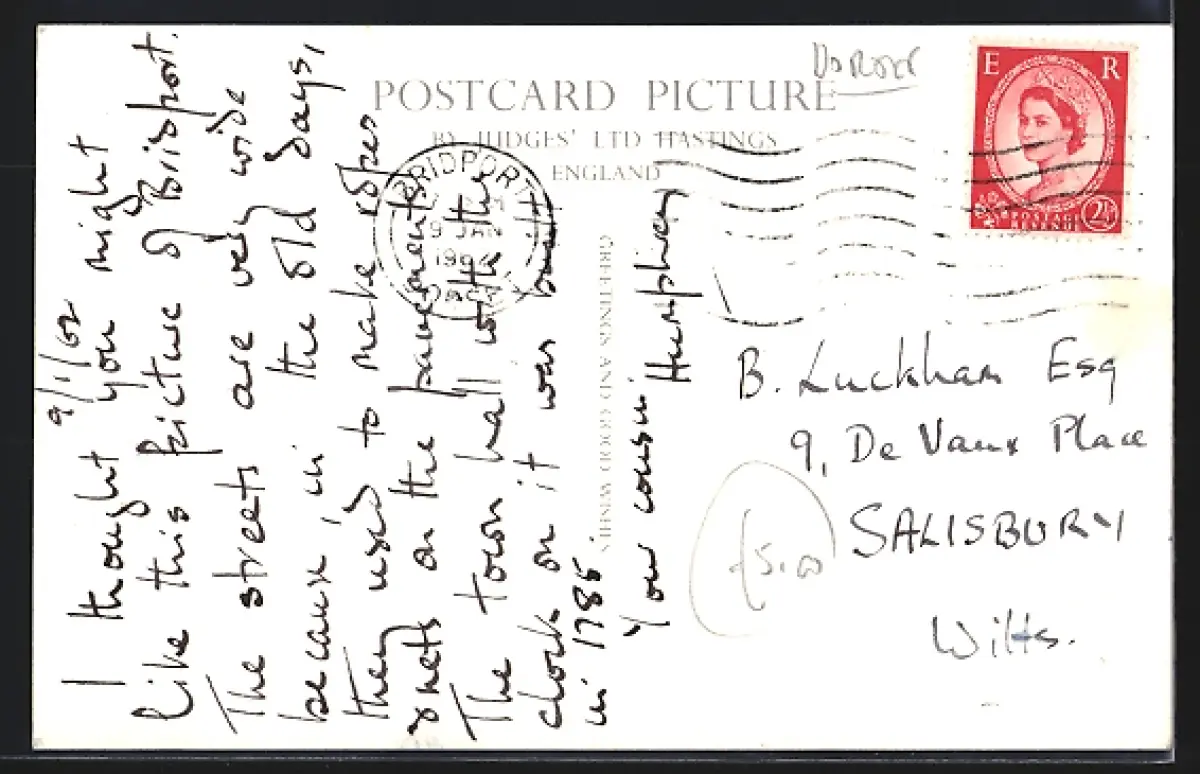 POSTCARD PICTURE
BY JUDGES' LTD HASTINGS
ENGLAND
GREETINGS AND GOOD WISHES
BRIDPORT
9 JAN
DORSET
E R
POSTAGE
REVENUE
2½
I thought you might
like this picture of Bridport.
The streets are very wide
because in the old days,
they used to make ropes
& nets on the pavements.
The town hall with the
clock on it was built
in 1785.
Your cousin
Humphrey
B. Luckham Esq
9, De Vaux Place
SALISBURY
Wilts.
£5.00